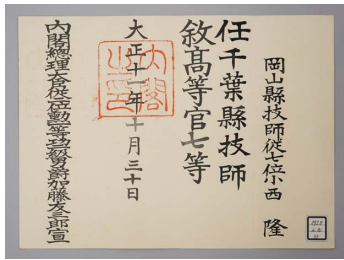 岡山縣技師從七位小西 隆
任千葉縣技師
敘高等官七等
大正十一年十月三十日
內閣總理大臣從二位勳一等功二級男爵加藤友三郎宣
內閣之印